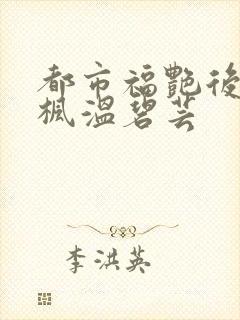 都市福艷後
楓溫碧芸
李洪英